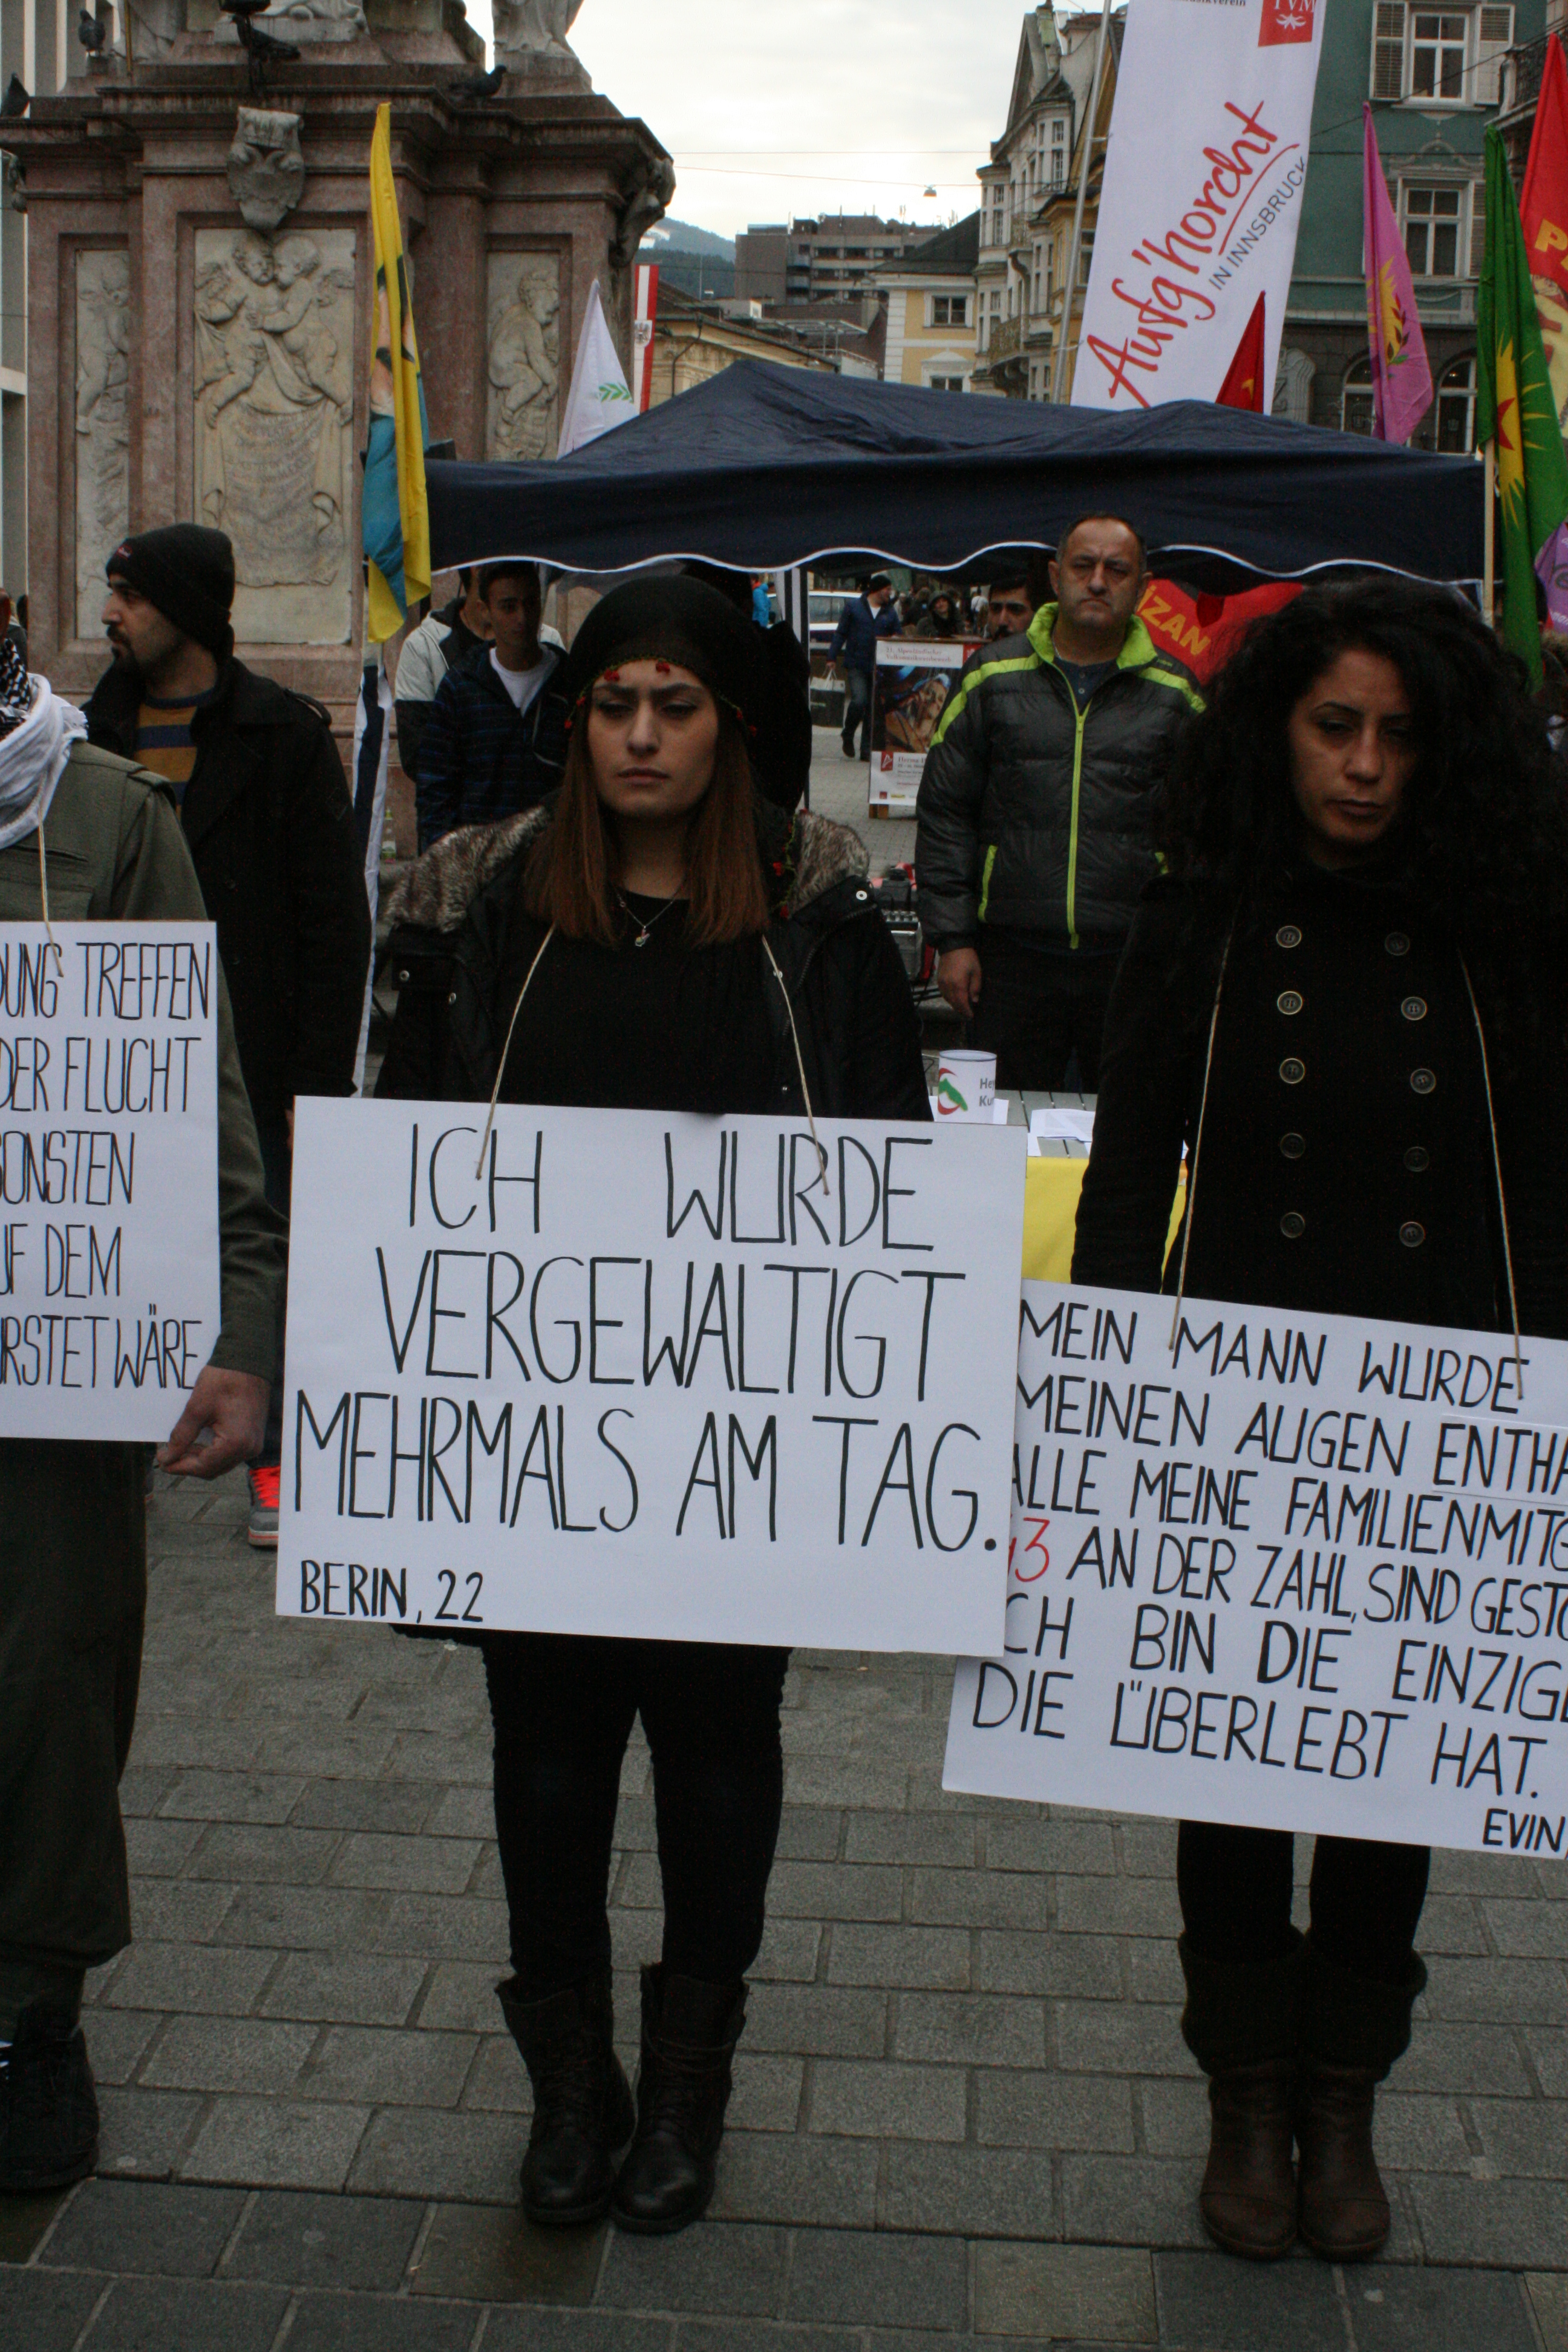 TVM
Aufg'horcht
IN INNSBRUCK
IZAN
TREFFEN
DER FLUCHT
SONSTEN
DEM
WÄRE
ICH WURDE
VERGEWALTIGT
MEHRMALS AM TAG.
BERIN, 22
MEIN MANN WURDE
MEINEN AUGEN ENTHA
ALLE MEINE FAMILIENMITG
13 AN DER ZAHL, SIND GESTO
ICH BIN DIE EINZIGE
DIE ÜBERLEBT HAT.
EVIN